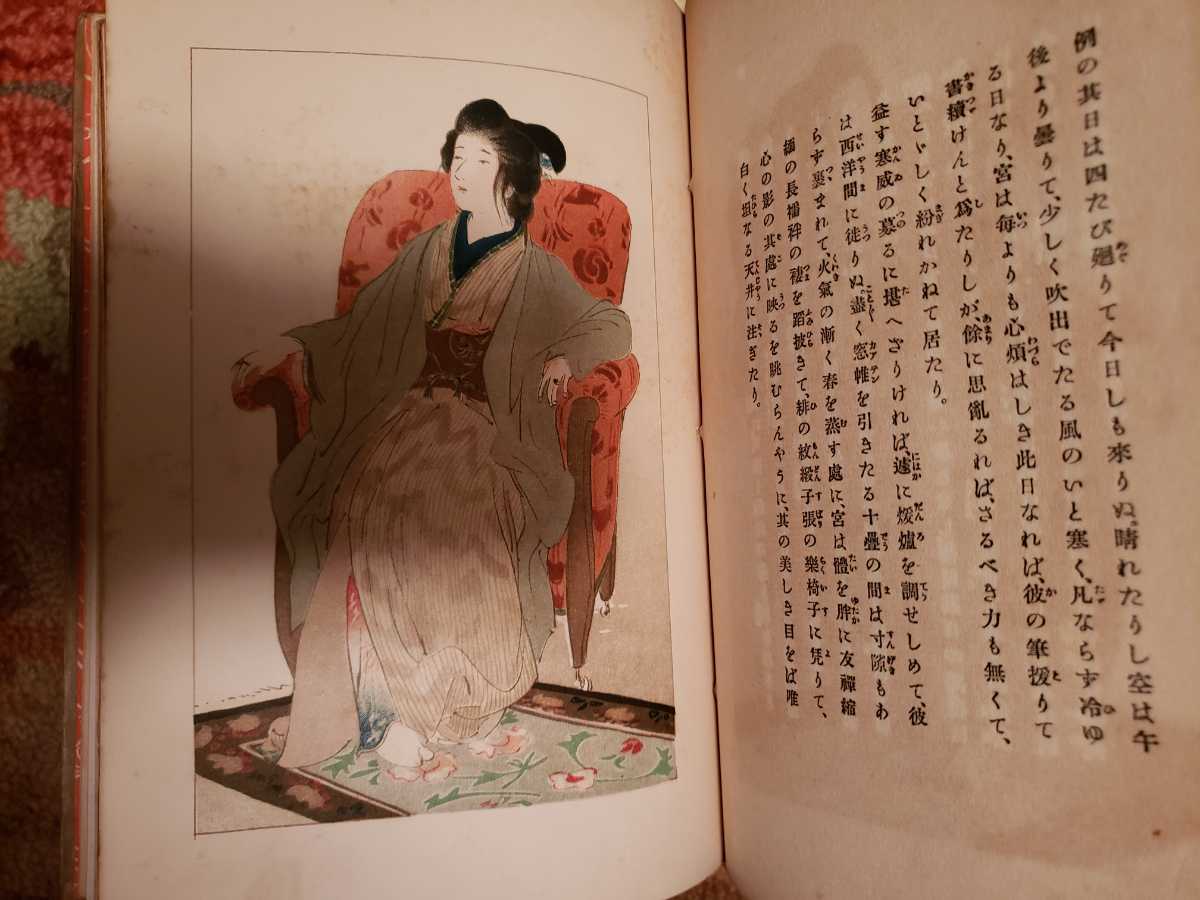 例の其日は四たび廻りて今日しも來りぬ。晴れたりし空は、午
後より曇りて、少しく吹出でたる風のいと寒く、凡ならず冷ゆ
る日なり、宮は毎よりも心煩はしき此日なれば、彼の筆援りて
書續けんと爲たりしが、餘に思亂るれば、さるべき力も無くて、
いとゞしく紛れかねて居たり。
益す寒威の募るに堪へざりければ、遽に煖爐を調せしめて、彼
は西洋間に徙りぬ。盡く窓帷を引きたる十疊の間は寸隙もあ
らず裹まれて、火氣の漸く春を蒸す處に、宮は體を胖に友禪縮
緬の長襦袢の褄を蹈披きて、緋の紋緞子張の樂椅子に凭りて、
心の影の其處に映るを眺むらんやうに、其の美しき目をば唯
白く坦なる天井に注ぎたり。